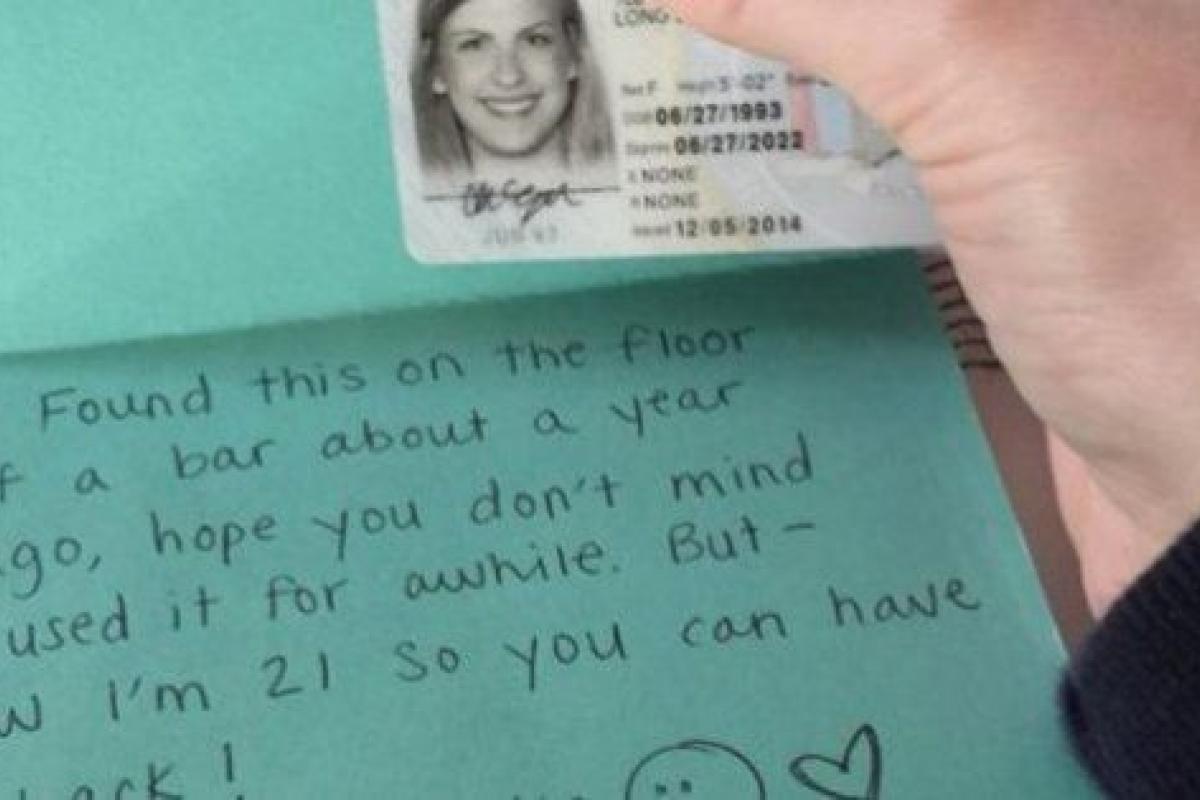 LONG
Sex F Height 5'-02"
DOB 06/27/1993
Expires 06/27/2022
E NONE
R NONE
Issued 12/05/2014
JUN 93
Found this on the floor
f a bar about a year
go, hope you don't mind
used it for awhile. But –
w I'm 21 so you can have
ack!